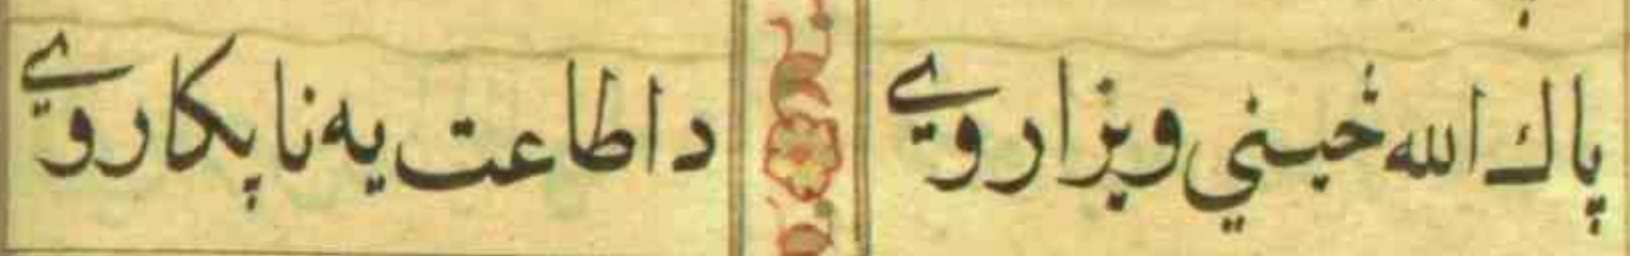 پاك الله خبني وبزار وي
داطاعت يه ناپکار وي